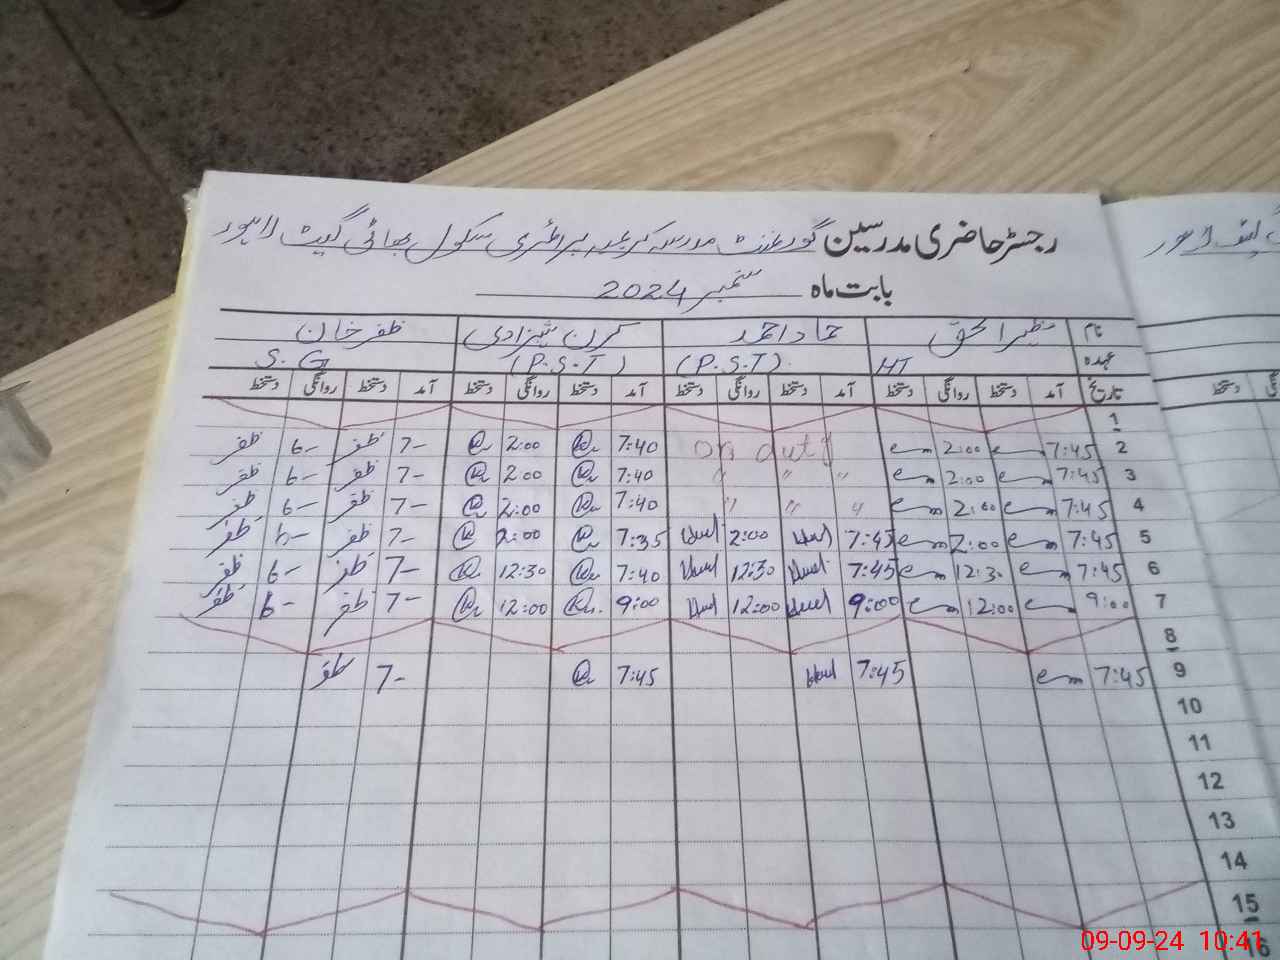 رجسٹر حاضری مدرسین گورنمنٹ مدرسہ کریمیہ پرائمری سکول بھاٹی گیٹ لاہور
بابت ماہ ستمبر 2024
نام حماد احمد کرن شہزادی ظفر خان
عہدہ HT (P.S.T) (P.S.T) S.G
تاریخ آمد دستخط روانگی دستخط آمد دستخط روانگی دستخط آمد دستخط روانگی دستخط آمد دستخط روانگی دستخط
1
2 7:45 2:00 on duty 7:40 2:00 7- ظفر 6- ظفر
3 7:45 2:00 " " " 7:40 2:00 7- ظفر 6- ظفر
4 7:45 2:00 " " " 7:40 2:00 7- ظفر 6- ظفر
5 7:45 2:00 7:45 2:00 7:35 2:00 7- ظفر 6- ظفر
6 7:45 12:30 7:45 12:30 7:40 12:30 7- ظفر 6- ظفر
7 9:00 12:00 9:00 12:00 9:00 12:00 7- ظفر 6- ظفر
8
9 7:45 7:45 7:45 7- ظفر
10
11
12
13
14
15
16
09-09-24 10:41